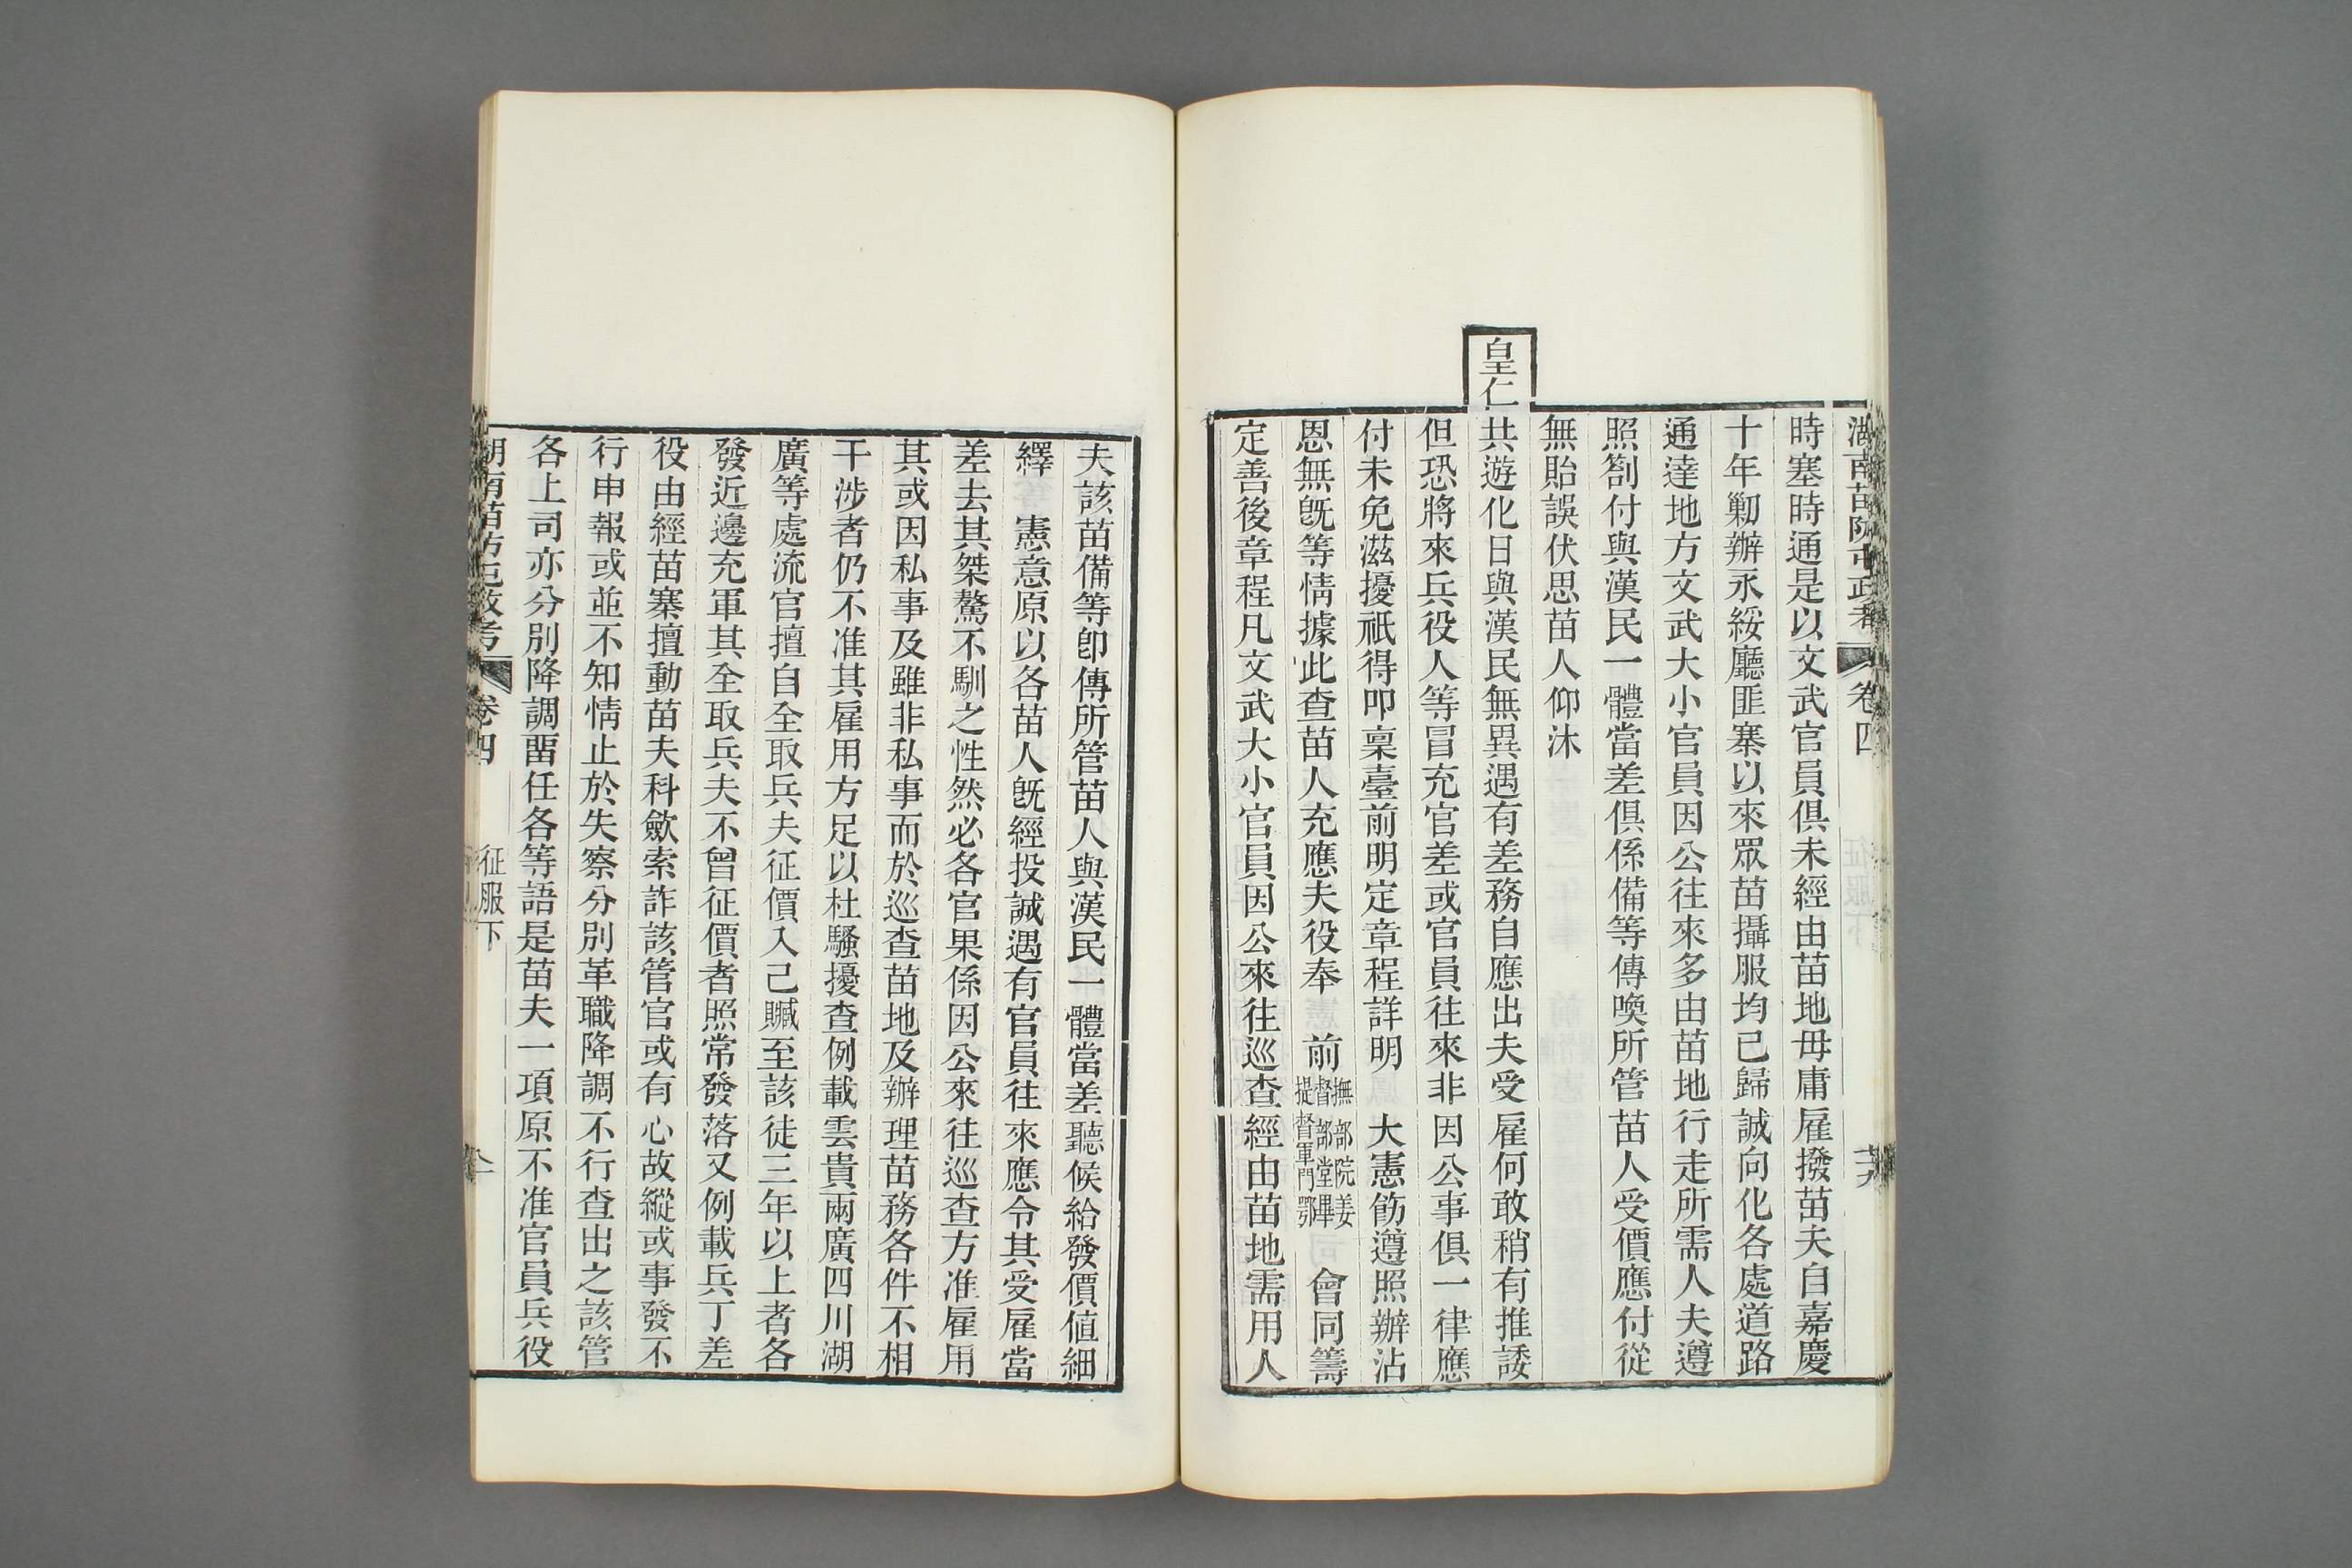 湖南苗防屯政考 卷四
時塞時通是以文武官員俱未經由苗地毋庸雇撥苗夫自嘉慶
十年勦辦永綏廳匪寨以來眾苗攝服均已歸誠向化各處道路
通達地方文武大小官員因公往來多由苗地行走所需人夫遵
照劄付與漢民一體當差俱係備等傳喚所管苗人受價應付從
無貽誤伏思苗人仰沐
皇仁共遊化日與漢民無異遇有差務自應出夫受雇何敢稍有推諉
但恐將來兵役人等冒充官差或官員往來非因公事俱一律應
付未免滋擾祇得叩稟臺前明定章程詳明 大憲飭遵照辦沾
恩無旣等情據此查苗人充應夫役奉 前撫部院姜督部堂畢提督軍門鄂 會同籌
定善後章程凡文武大小官員因公來往巡查經由苗地需用人
夫該苗備等卽傳所管苗人與漢民一體當差聽候給發價值細
繹 憲意原以各苗人旣經投誠遇有官員往來應令其受雇當
差去其桀驁不馴之性然必各官果係因公來往巡查方准雇用
其或因私事及雖非私事而於巡查苗地及辦理苗務各件不相
干涉者仍不准其雇用方足以杜騷擾查例載雲貴兩廣四川湖
廣等處流官擅自全取兵夫征價入己贓至該徒三年以上者各
發近邊充軍其全取兵夫不曾征價者照常發落又例載兵丁差
役由經苗寨擅動苗夫科歛索詐該管官或有心故縱或事發不
行申報或並不知情止於失察分別革職降調不行查出之該管
各上司亦分別降調畱任各等語是苗夫一項原不准官員兵役
湖南苗防屯政考 卷四 征服下